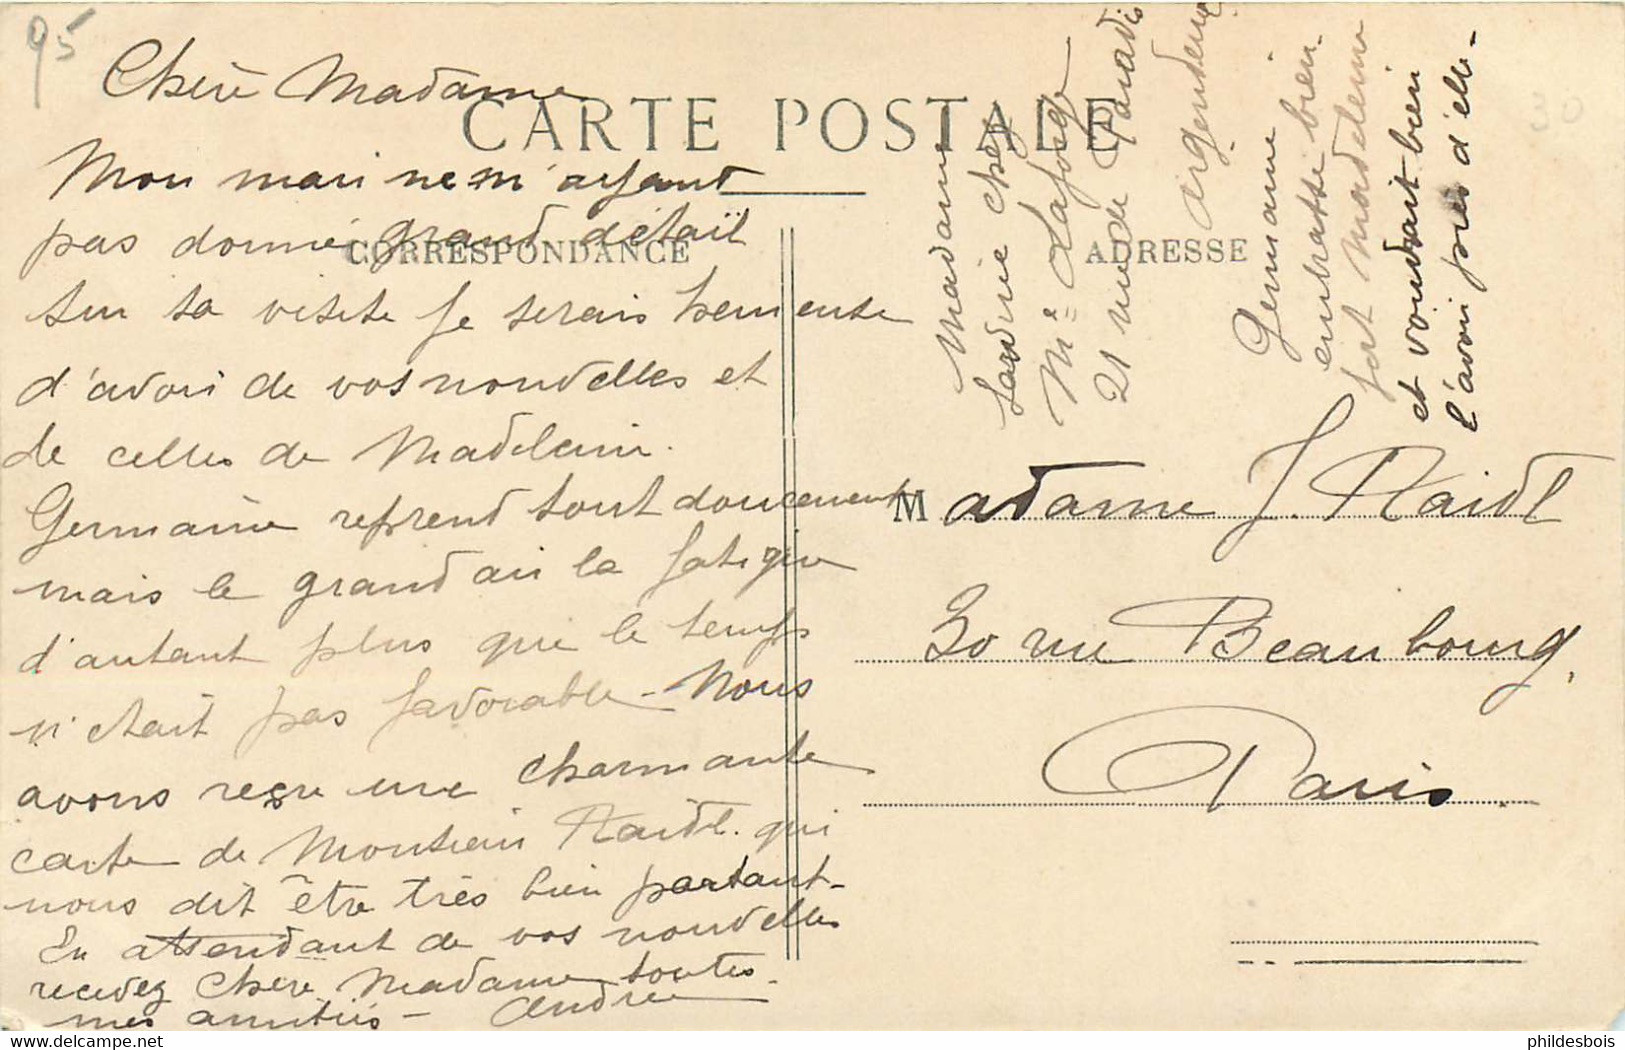 95
Chère Madame
CARTE POSTALE
Mon mari ne m'ayant
pas donné grand détail
CORRESPONDANCE
sur sa visite je serais heureuse
d'avoir de vos nouvelles et
de celles de Madeleine.
Germaine reprend tout doucement
mais le grand air la fatigue
d'autant plus que le temps
n'était pas favorable - Nous
avons reçu une charmante
carte de Monsieur Raidl. qui
nous dit être très bien portant -
En attendant de vos nouvelles
recevez Chère Madame toutes
mes amitiés - Andrée
ADRESSE
Madame
chez
Me Laforge
21 rue de Paradis
Argenteuil
Germaine
embrasse bien
fort Madeleine
et voudrait bien
l'avoir près d'elle -
Madame J. Raidl
30 rue Beaubourg.
Paris
phildesbois